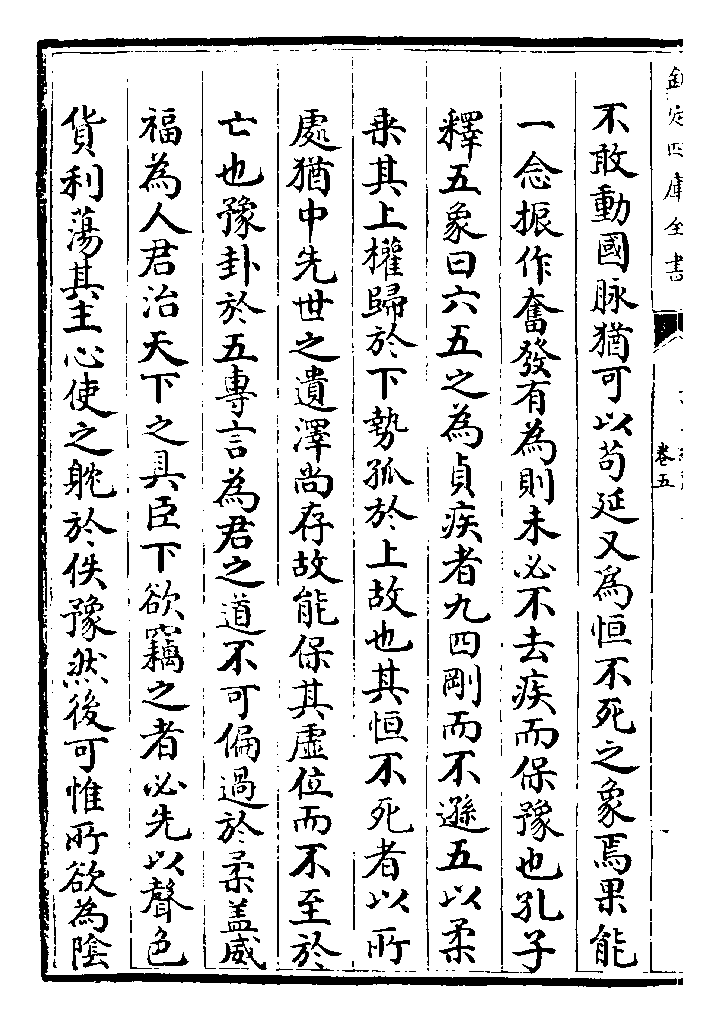 欽定四庫全書
卷五
不敢動國脉猶可以苟延又為恒不死之象焉果能
一念振作奮發有為則未必不去疾而保豫也孔子
釋五象曰六五之為貞疾者九四剛而不遜五以柔
乗其上權歸於下勢孤於上故也其恒不死者以所
處猶中先世之遺澤尚存故能保其虛位而不至於
亡也豫卦於五專言為君之道不可偏過於柔盖威
福為人君治天下之具臣下欲竊之者必先以聲色
貨利蕩其主心使之躭於佚豫然後可惟所欲為隂